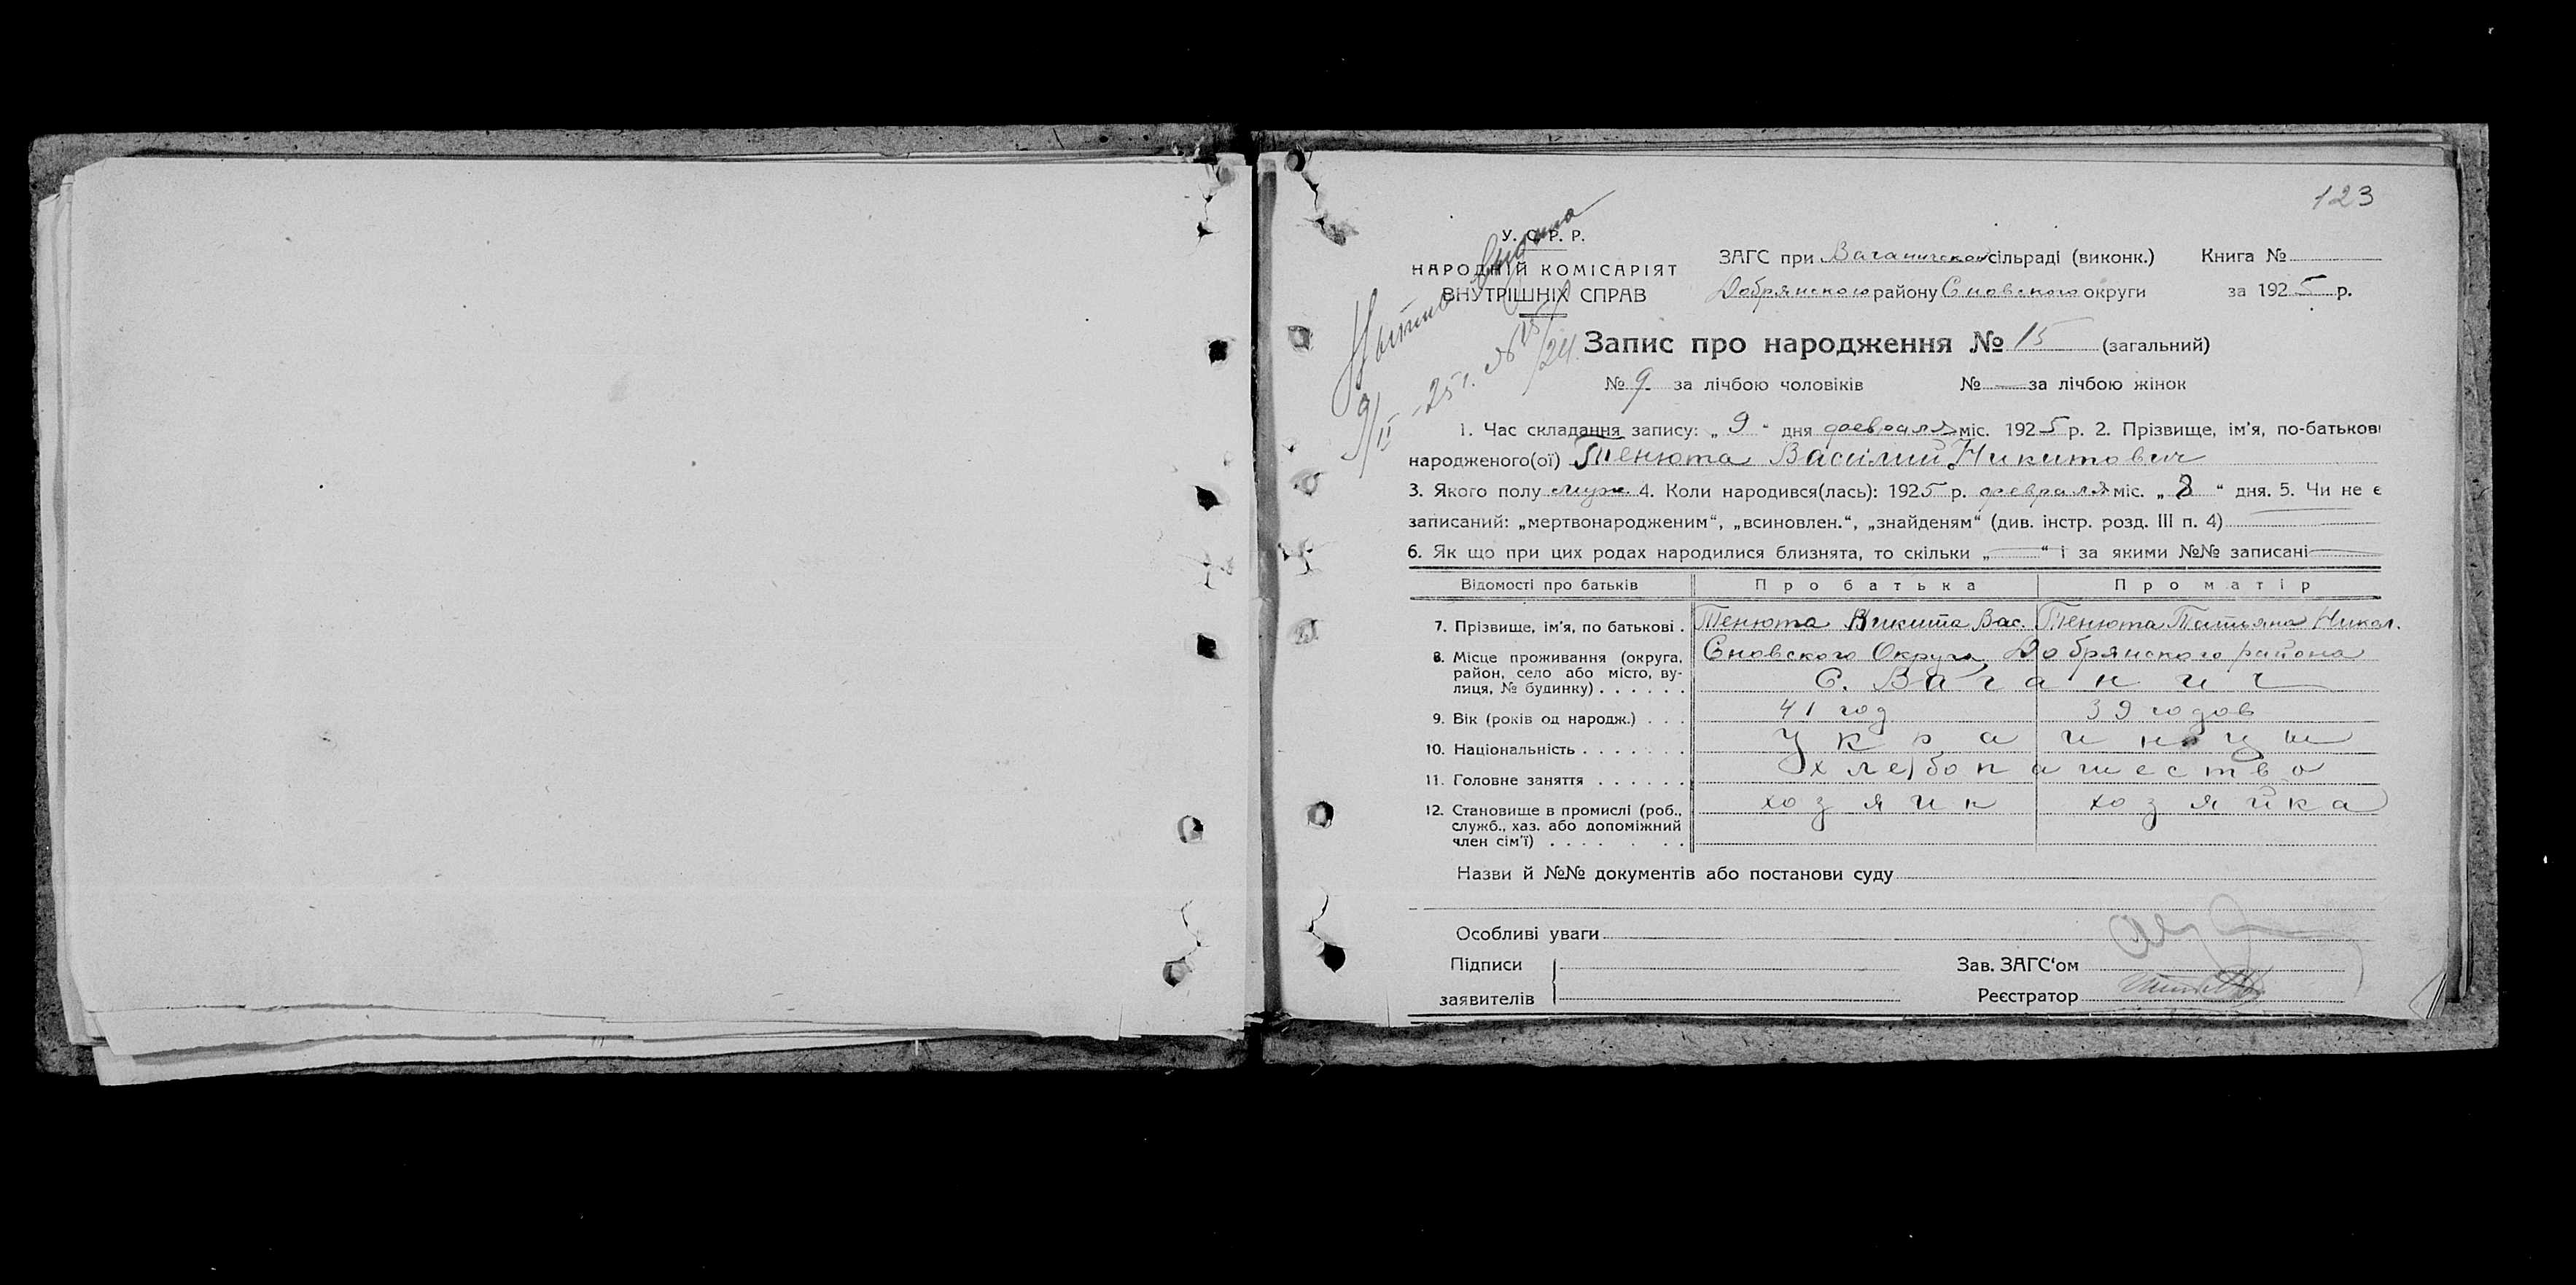 123
У. С. Р. Р.
НАРОДНІЙ КОМІСАРІЯТ
ВНУТРІШНІХ СПРАВ
ЗАГС при Ваганичской сільраді (виконк.) Книга №
Добрянского району Сновского округи за 1925 р.
Выпись выдана
9/II-25 г. № 15/24.
Запис про народження № 15 (загальний)
№ 9 за лічбою чоловіків № — за лічбою жінок
1. Час складання запису: „ 9 “ дня февраля міс. 1925 р. 2. Прізвище, ім'я, по-батькові
народженого(ої) Тенюта Василий Никитович
3. Якого полу муж. 4. Коли народився(лась): 1925 р. февраля міс. „ 8 “ дня. 5. Чи не є
записаний: „мертвонародженим“, „всиновлен.“, „знайденям“ (див. інстр. розд. III п. 4) —
6. Як що при цих родах народилися близнята, то скільки „ — “ і за якими №№ записані —
Відомості про батьків Про батька Про матір
7. Прізвище, ім'я, по батькові . Тенюта Никита Вас. Тенюта Татьяна Никол.
8. Місце проживання (округа, район, село або місто, вулиця, № будинку) . . . . . . Сновского Округа, Добрянского района
С. Ваганич
9. Вік (років од народж.) . . . 41 год 39 годов
10. Національність . . . . . . . Украинцы
11. Головне заняття . . . . . . хлебопашество
12. Становище в промислі (роб., хозяин хозяйка
служб., хаз. або допоміжний
член сім'ї) . . . . . . .
Назви й №№ документів або постанови суду
Особливі уваги
Підписи
заявителів
Зав. ЗАГС‘ом
Реєстратор